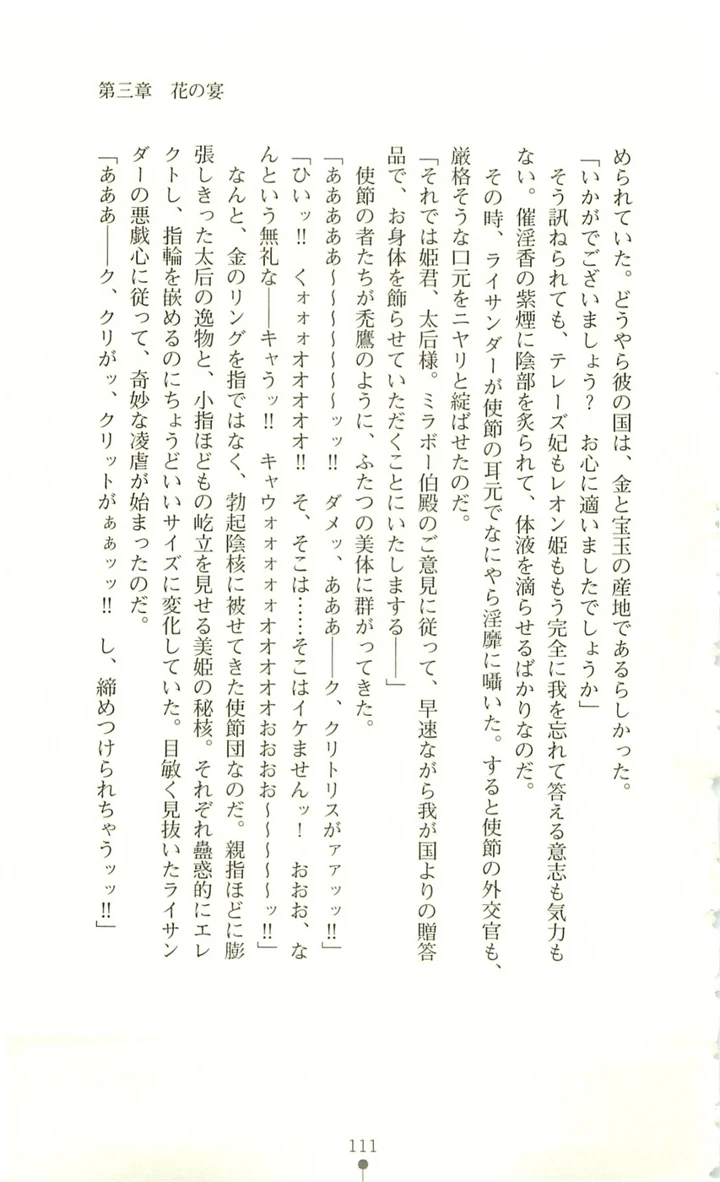 第三章　花の宴
められていた。どうやら彼の国は、金と宝玉の産地であるらしかった。
「いかがでございましょう？　お心に適いましたでしょうか」
　そう訊ねられても、テレーズ妃もレオン姫ももう完全に我を忘れて答える意志も気力も
ない。催淫香の紫煙に陰部を炙られて、体液を滴らせるばかりなのだ。
　その時、ライサンダーが使節の耳元でなにやら淫靡に囁いた。すると使節の外交官も、
厳格そうな口元をニヤリと綻ばせたのだ。
「それでは姫君、太后様。ミラボー伯殿のご意見に従って、早速ながら我が国よりの贈答
品で、お身体を飾らせていただくことにいたしまする――」
　使節の者たちが禿鷹のように、ふたつの美体に群がってきた。
「あああああ～～～～～～～ッッ!!　ダメッ、あああ――ク、クリトリスがァァッッ!!」
「ひいッ!!　くォォォオオオオオ!!　そ、そこは……そこはイケませんッ！　おおお、な
んという無礼な――キャうッ!!　キャウォォォォォオオオオオおおおお～～～～～ッ!!」
　なんと、金のリングを指ではなく、勃起陰核に被せてきた使節団なのだ。親指ほどに膨
張しきった太后の逸物と、小指ほどもの屹立を見せる美姫の秘核。それぞれ蠱惑的にエレ
クトし、指輪を嵌めるのにちょうどいいサイズに変化していた。目敏く見抜いたライサン
ダーの悪戯心に従って、奇妙な凌虐が始まったのだ。
「あああ――ク、クリがッ、クリットがぁぁッッ!!　し、締めつけられちゃうッッ!!」
111